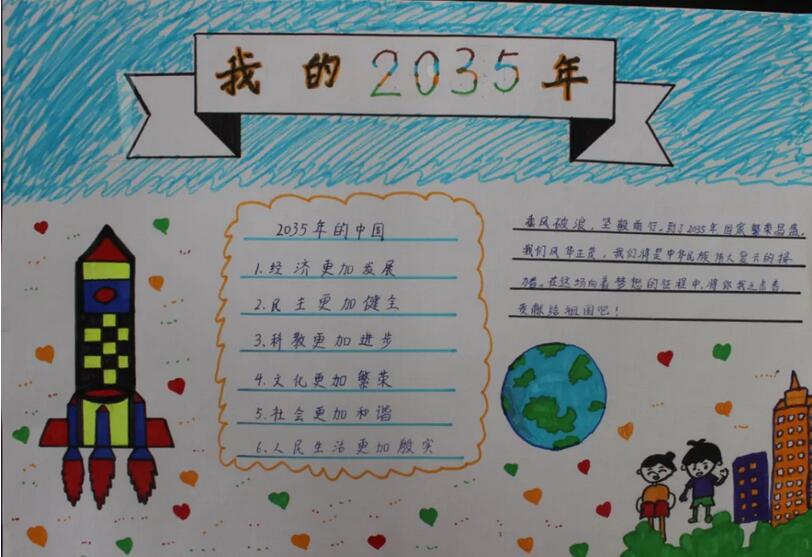 我的2035年
2035年的中国
1.经济更加发展
2.民主更加健全
3.科教更加进步
4.文化更加繁荣
5.社会更加和谐
6.人民生活更加殷实
乘风破浪，坚毅前行。到了2035年国家繁荣昌盛。
我们风华正茂，我们将是中华民族伟大复兴的
在这场向着梦想的征程中，将你我之青春，
贡献给祖国吧！